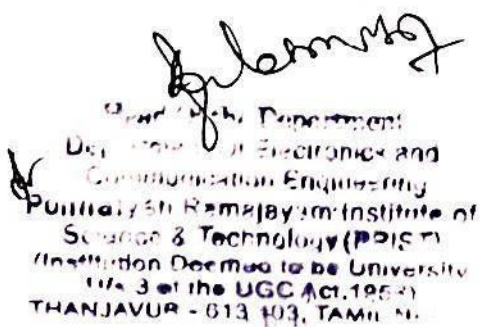 Head of the Department
Department of Electronics and
Communication Engineering
Ponnaiyah Ramajayam Institute of
Science & Technology (PRIST)
(Institution Deemed to be University
U/s 3 of the UGC Act, 1956)
THANJAVUR - 613 403, TAMIL